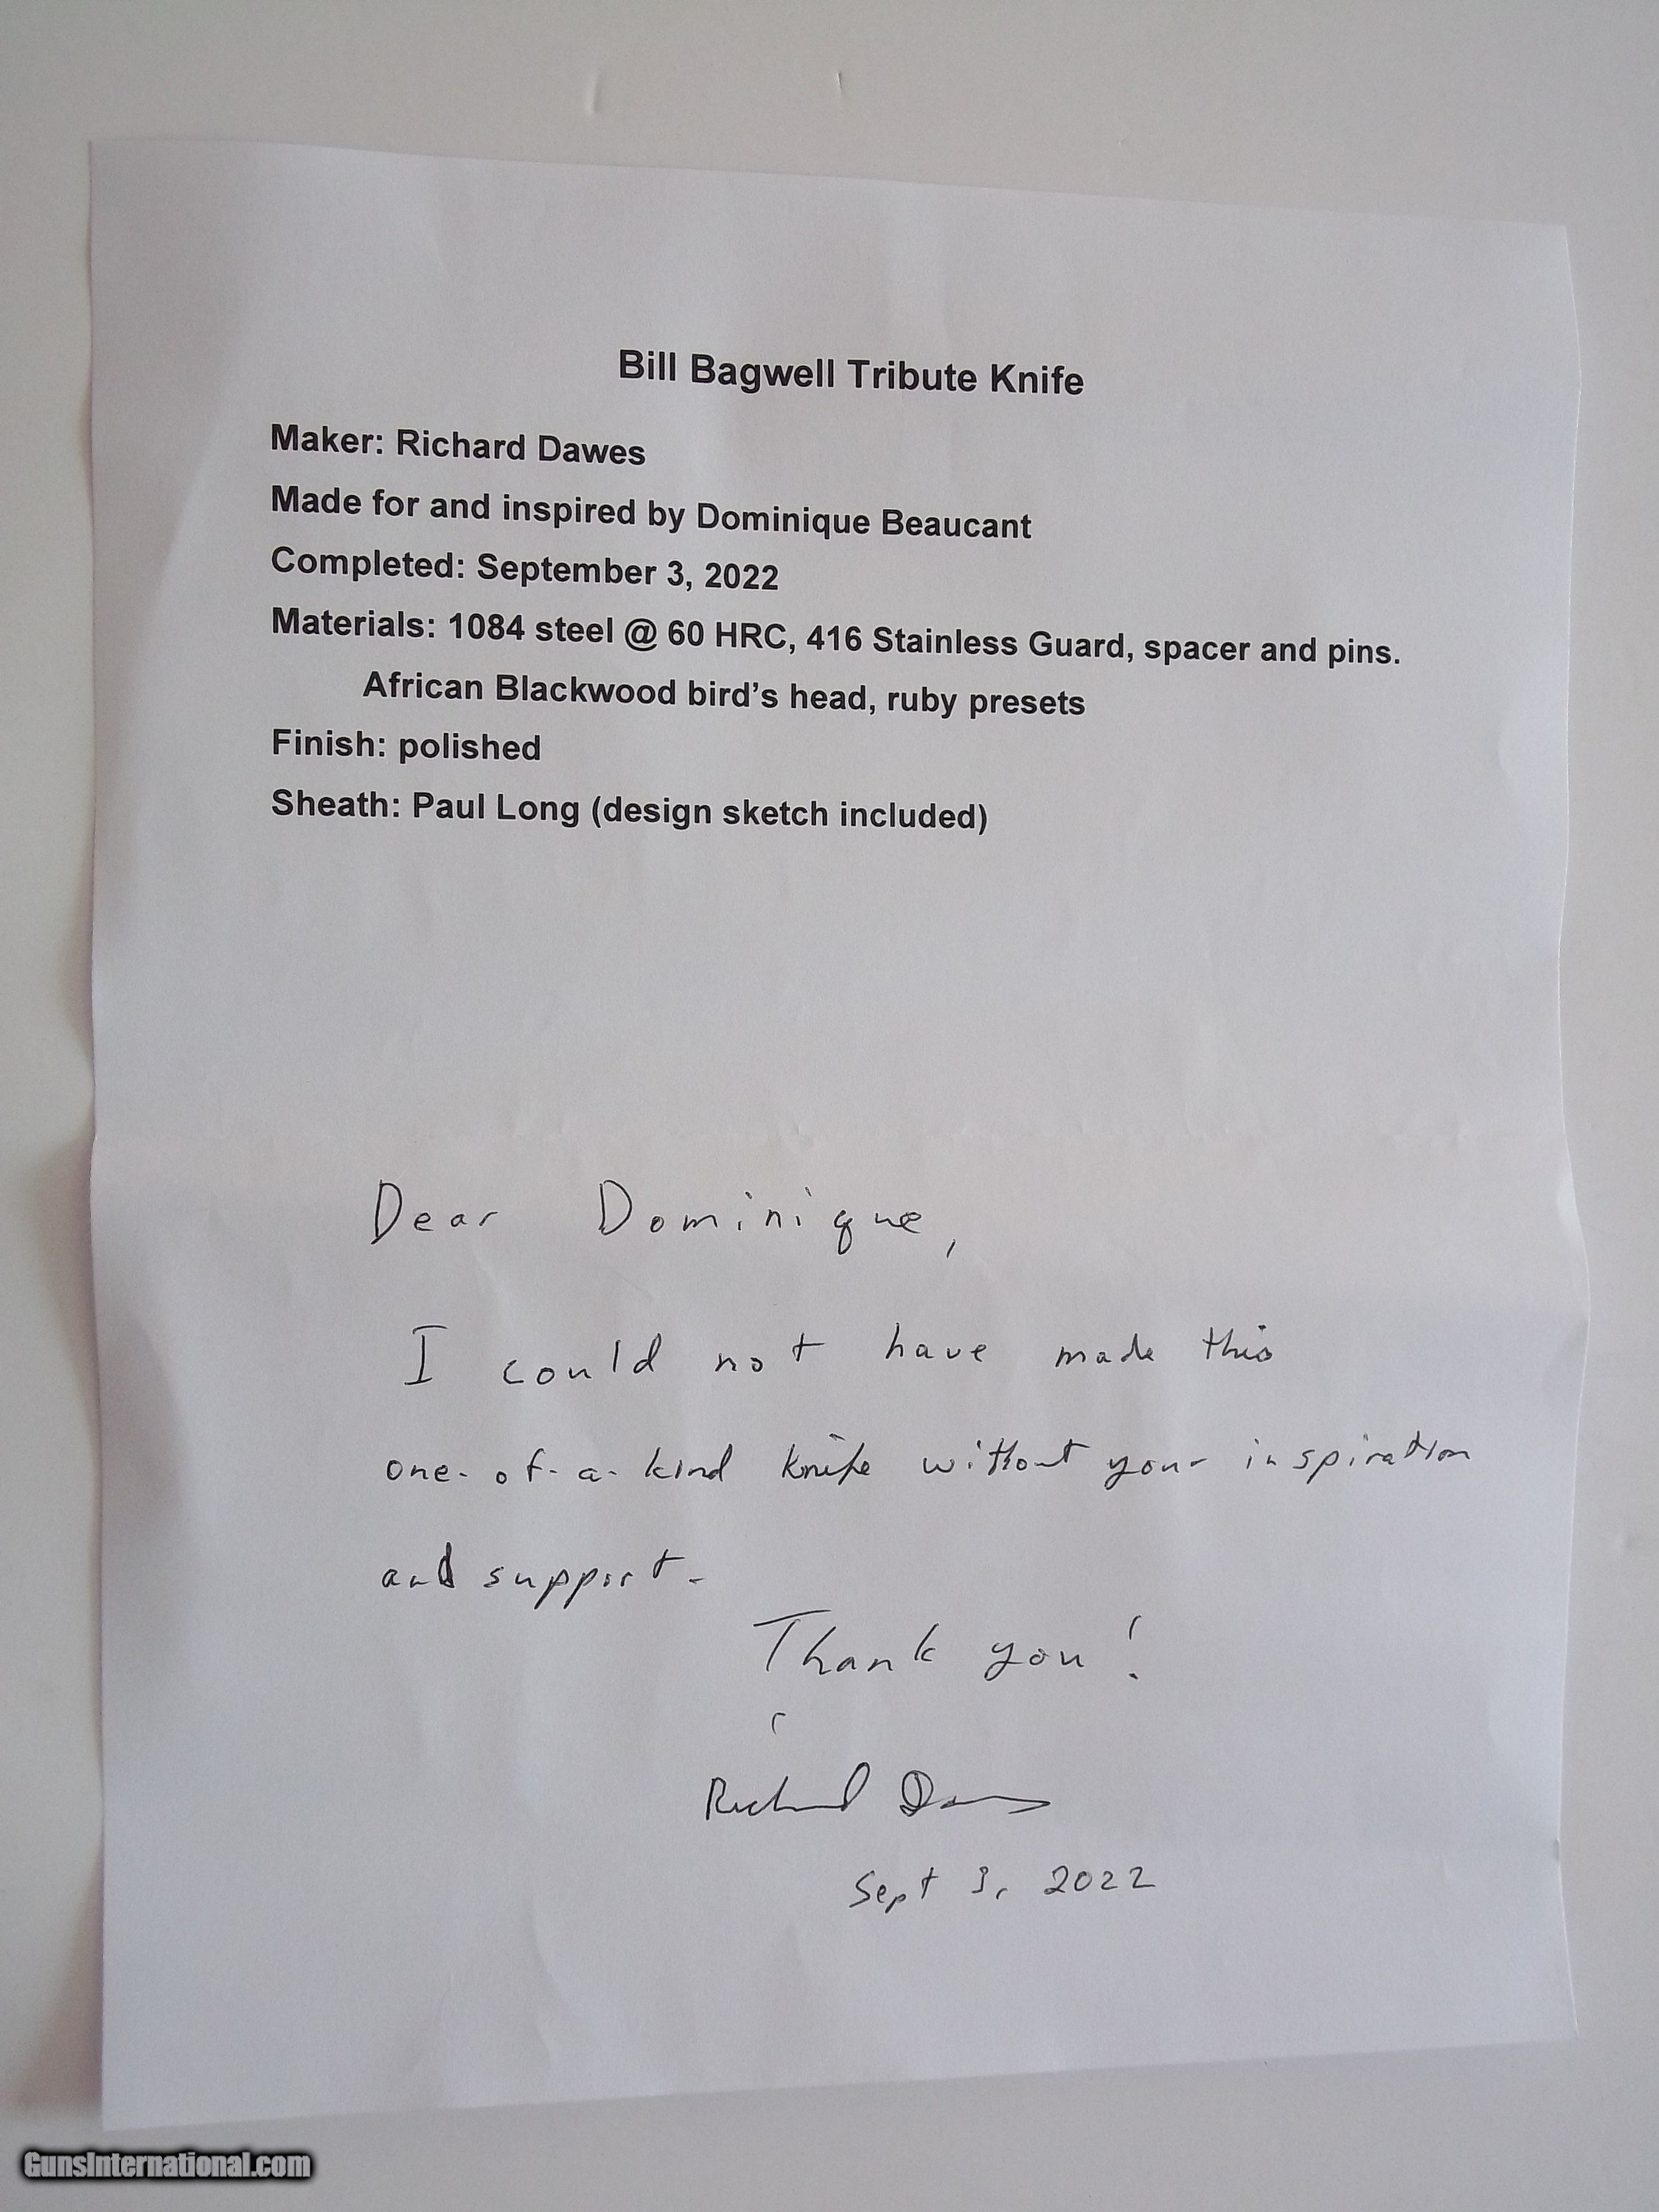 Bill Bagwell Tribute Knife
Maker: Richard Dawes
Made for and inspired by Dominique Beaucant
Completed: September 3, 2022
Materials: 1084 steel @ 60 HRC, 416 Stainless Guard, spacer and pins.
African Blackwood bird's head, ruby presets
Finish: polished
Sheath: Paul Long (design sketch included)
Dear Dominique,
I could not have made this
one-of-a-kind knife without your inspiration
and support.
Thank you!
Richard Dawes
Sept 3, 2022
GunsInternational.com